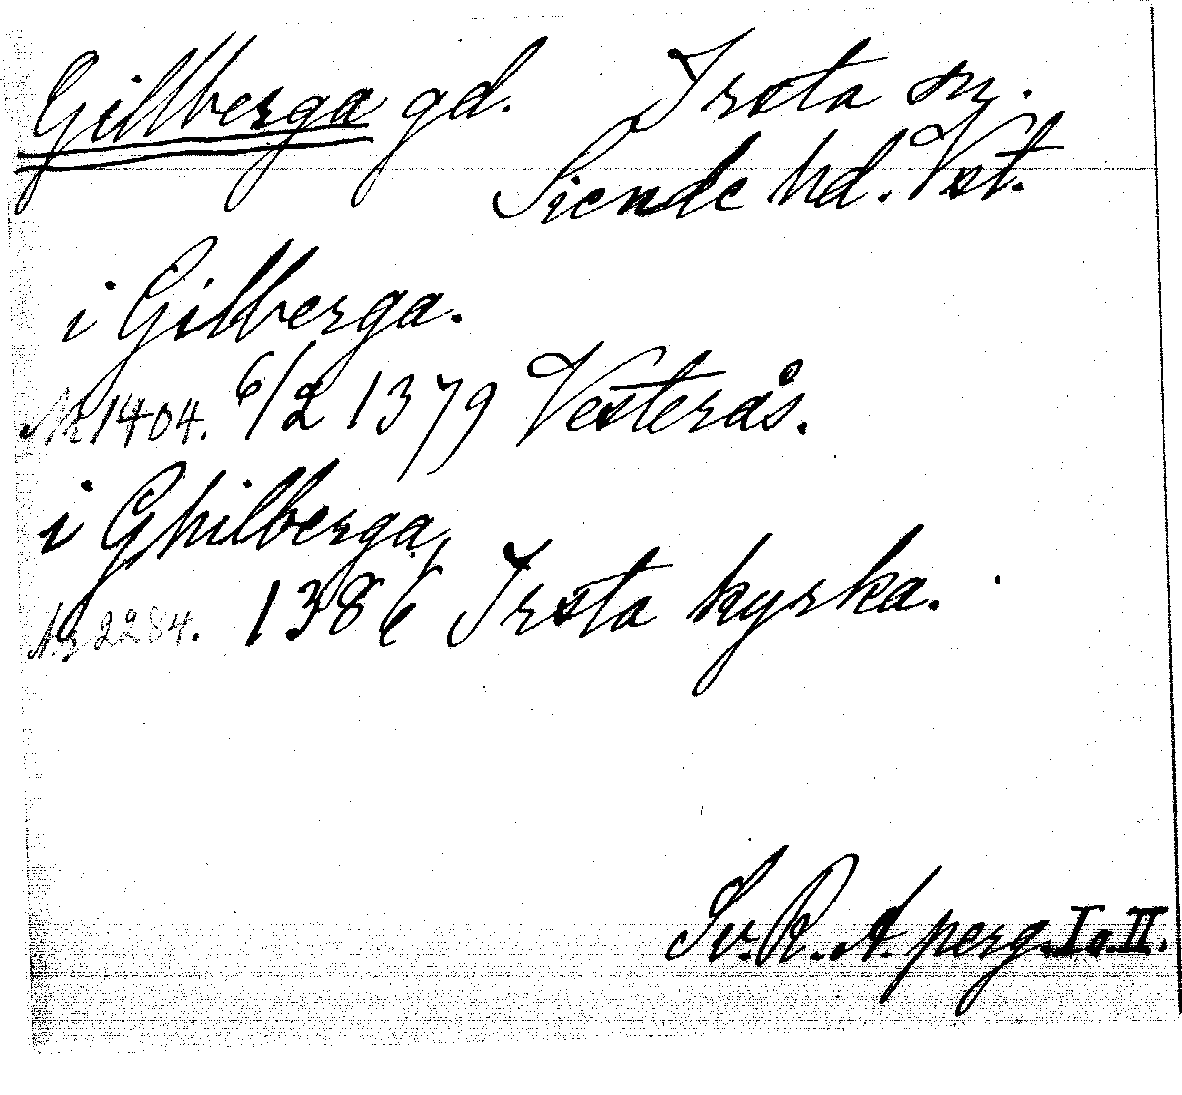 Gillberga gd. Irsta sn.
Siende hd. Vst.
i Gilberga.
Nr 1404. 6/2 1379 Vesterås.
i Ghilberga,
Nr 2284. 1386 Irsta kyrka.
Sv. R. A. perg. I o. II.